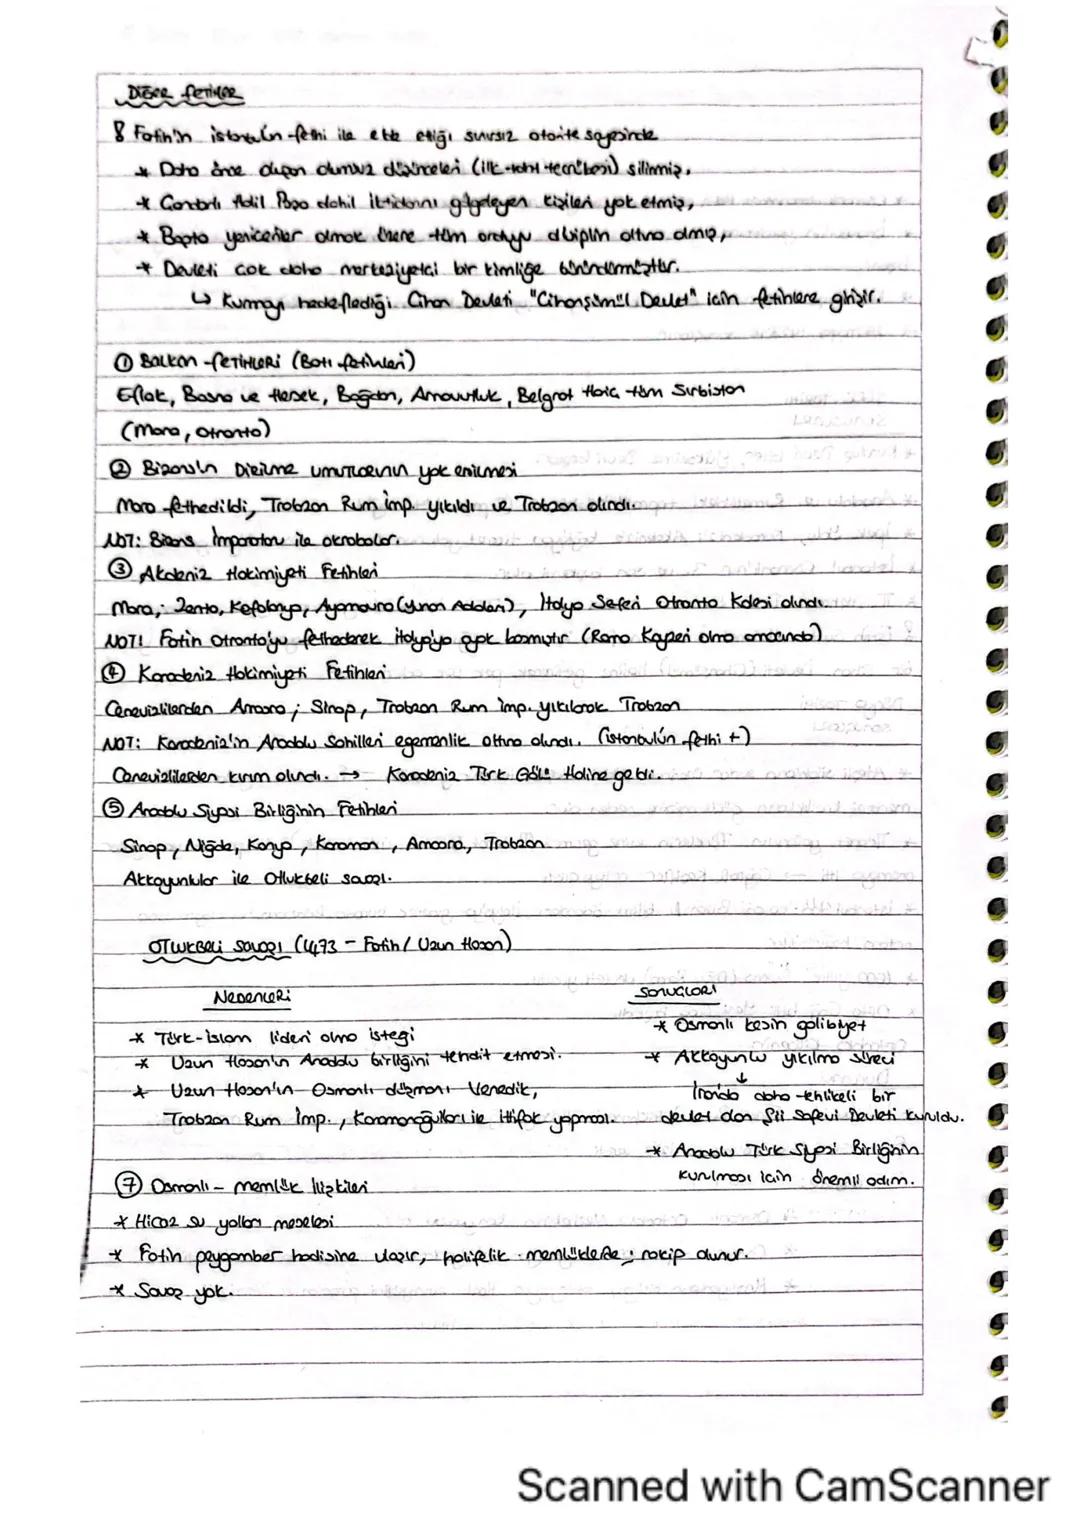 Diğer Fetihler
8 Fatih'in İstanbul'un fethi ile elde ettiği sınırsız otorite sayesinde
* Daha önce oluşan olumsuz düşünceleri (ilk taht tecrübesi) silinmiş,
* Çandarlı Halil Paşa dahil iktidarını gölgeleyen kişileri yok etmiş,
* Başta yeniçeriler olmak üzere tüm orduyu disiplin altına almış,
* Devleti çok daha merkeziyetçi bir kimliğe büründürmüştür.
↳ Kurmayı hedeflediği Cihan Devleti "Cihanşümül Devlet" için fetihlere girişir.
① Balkan Fetihleri (Batı fetihleri)
Eflak, Bosna ve Hersek, Boğdan, Arnavutluk, Belgrat Hariç tüm Sırbistan
(Mora, Otranto)
② Bizans'ın Dirilme umutlarının yok edilmesi
Mora fethedildi, Trabzon Rum İmp. yıkıldı ve Trabzon alındı.
NOT: Bizans İmparatoru ile akrabalar.
③ Akdeniz Hakimiyeti Fetihleri
Mora; Zanta, Kefalonya, Ayamavra (Yunan Adaları), İtalya Seferi Otranto Kalesi alındı.
NOT! Fatih Otranto'yu fethederek İtalya'ya ayak basmıştır (Roma Kayseri olma amacında)
④ Karadeniz Hakimiyeti Fetihleri
Cenevizlilerden Amasra; Sinop, Trabzon Rum İmp. yıkılarak Trabzon
NOT: Karadeniz'in Anadolu Sahilleri egemenlik altına alındı. (İstanbulún fethi +)
Cenevizlilerden Kırım alındı. → Karadeniz Türk Gölü Haline geldi.
⑤ Anadolu Siyasi Birliğinin Fetihleri
Sinop, Niğde, Konya, Karaman, Amasra, Trabzon
Akkoyunlular ile Otlukbeli savaşı.
OTLUKBELİ SAVAŞI (1473 - Fatih / Uzun Hasan)
Nedenleri
* Türk-İslam lideri olma isteği
* Uzun Hasan'ın Anadolu birliğini tehdit etmesi.
* Uzun Hasan'ın Osmanlı düşmanı Venedik,
Trabzon Rum İmp., Karamanoğulları ile ittifak yapması.
Sonuçları
* Osmanlı kesin galibiyet
* Akkoyunlu yıkılma süreci
↓
İran'da daha tehlikeli bir
devlet olan Şii Safevi Devleti kuruldu.
* Anadolu Türk Siyasi Birliğinin
kurulması için önemli adım.
⑦ Osmanlı - memlük ilişkileri
* Hicaz su yolları meselesi
* Fatih peygamber hadisine ulaşır, halifelik memlüklerde; rakip olunur.
* Savaş yok.
Scanned with CamScanner